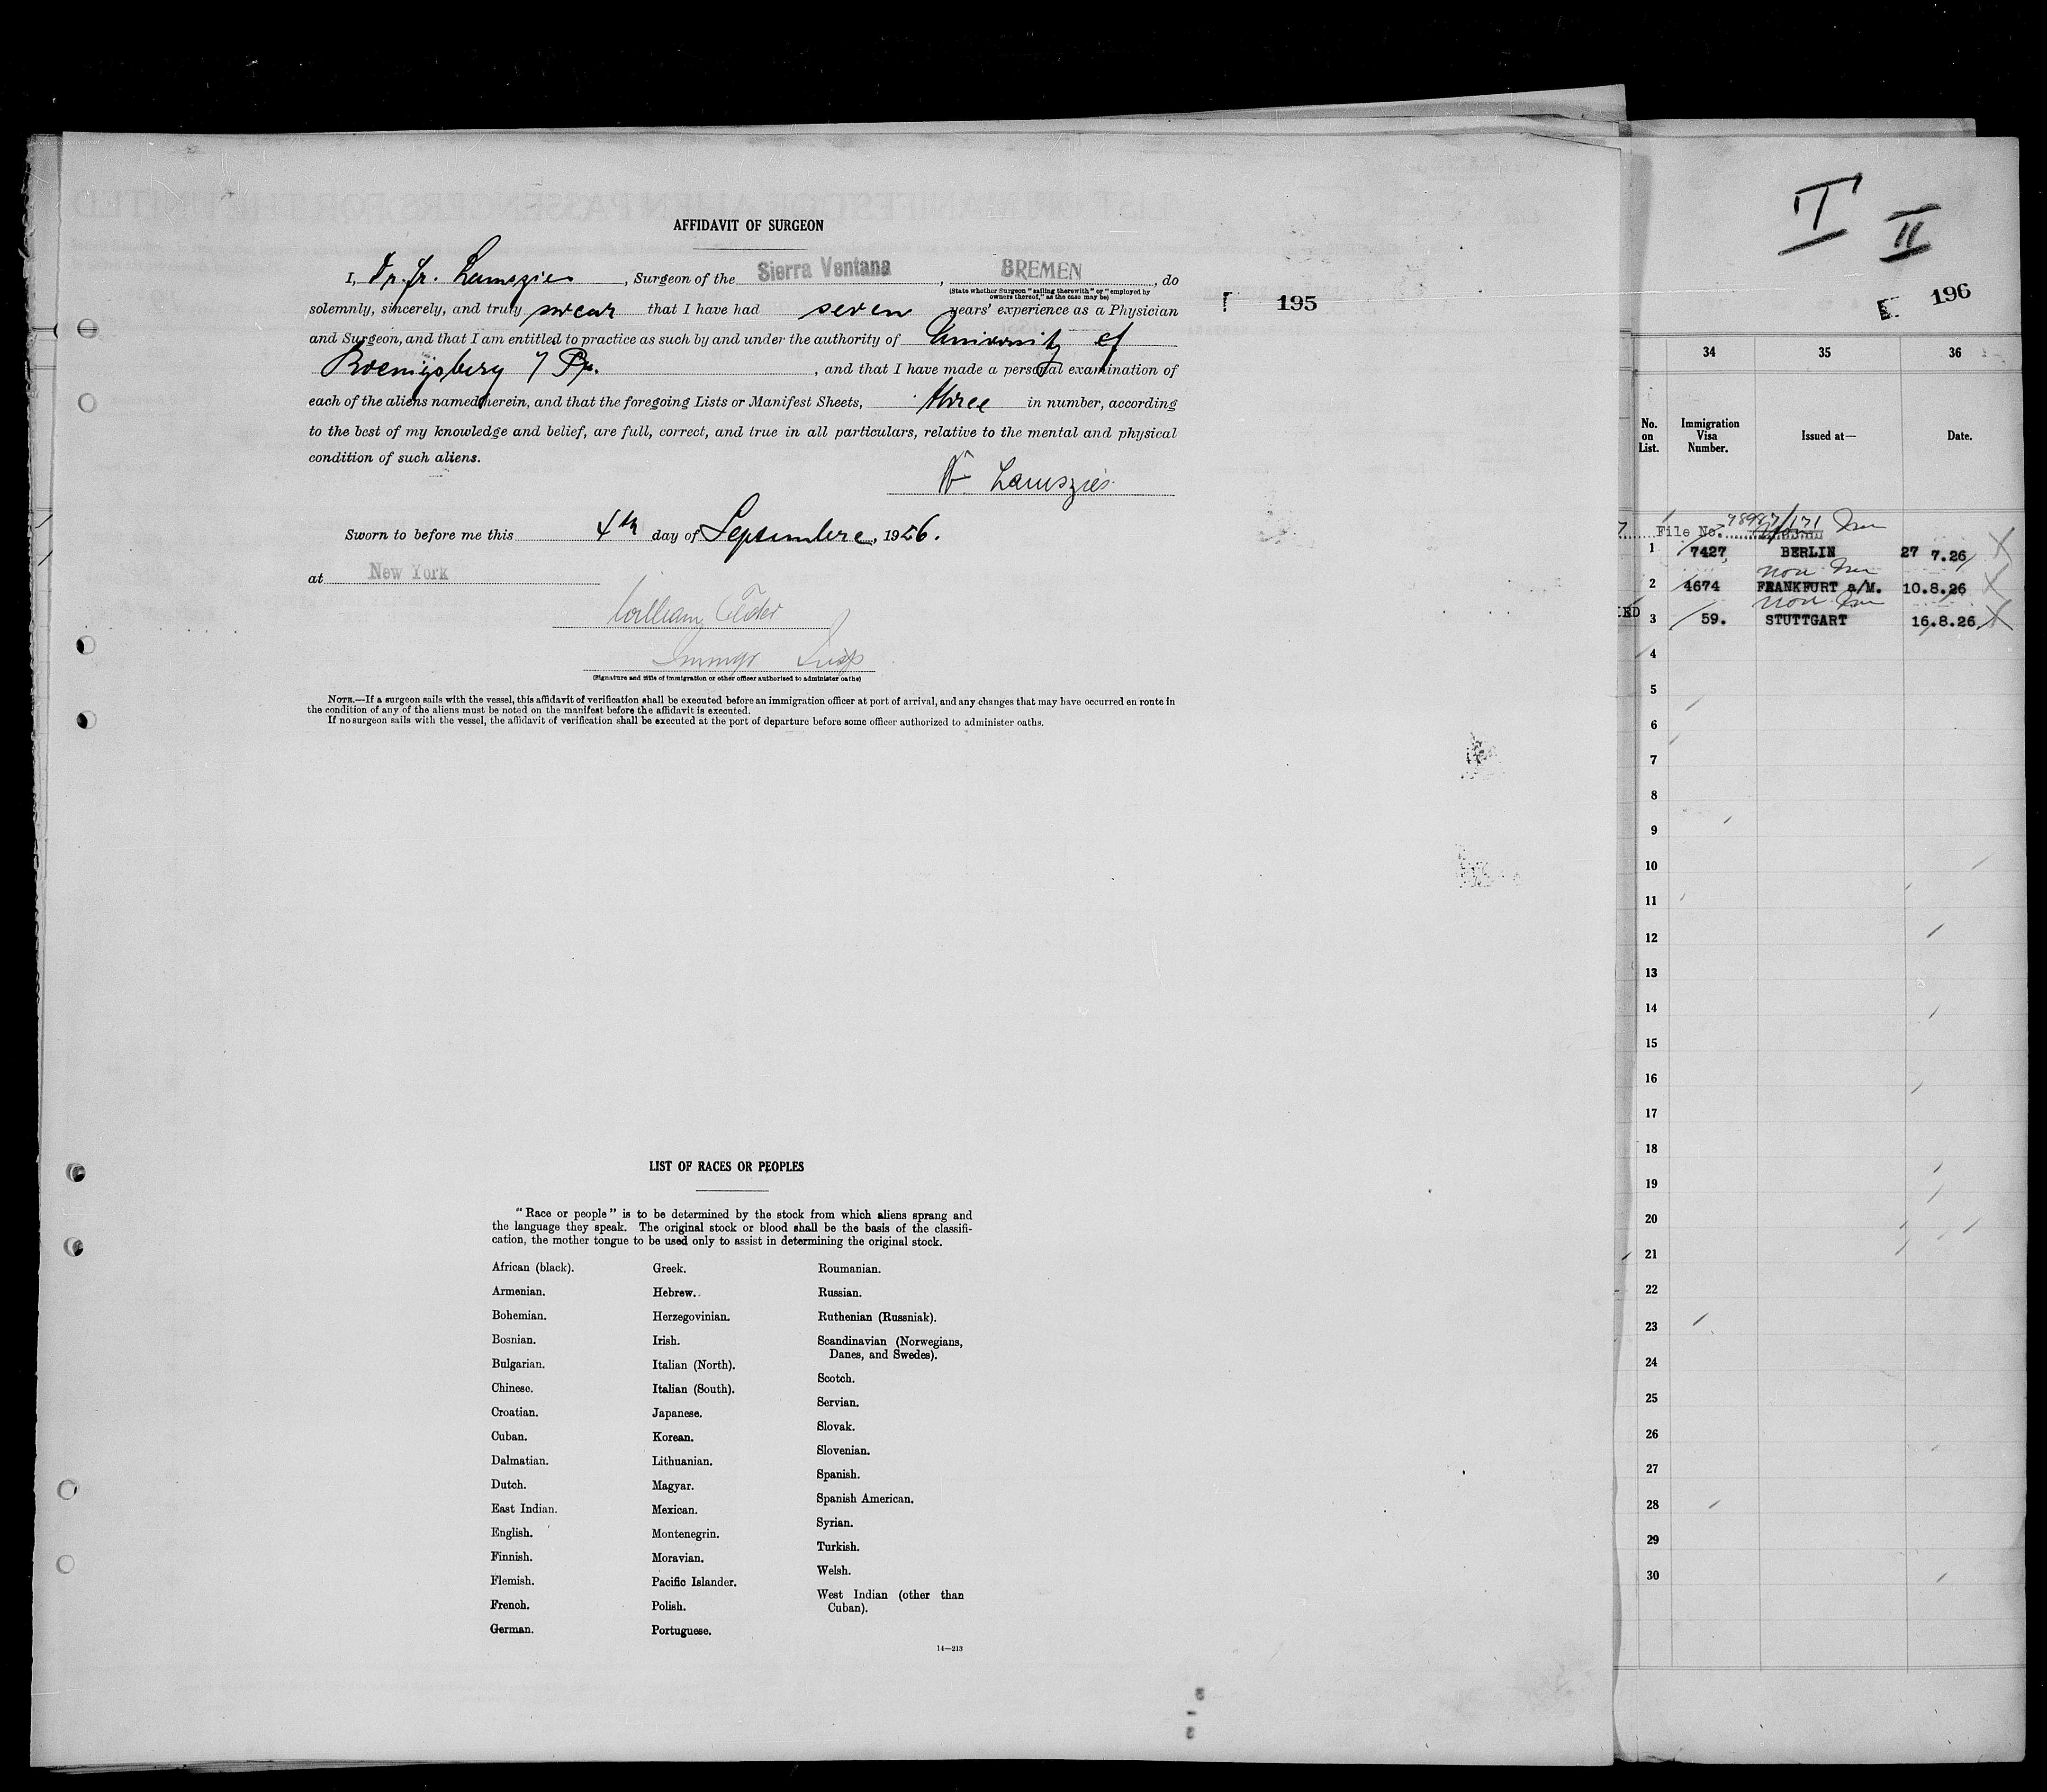 AFFIDAVIT OF SURGEON
I, Dr. Fr. Lamszies, Surgeon of the Sierra Ventana, BREMEN, do
(State whether Surgeon "sailing therewith" or "employed by
owners thereof," as the case may be)
solemnly, sincerely, and truly swear that I have had seven years' experience as a Physician
and Surgeon, and that I am entitled to practice as such by and under the authority of University of
Koenigsberg / Pr., and that I have made a personal examination of
each of the aliens named herein, and that the foregoing Lists or Manifest Sheets, three in number, according
to the best of my knowledge and belief, are full, correct, and true in all particulars, relative to the mental and physical
condition of such aliens.
Dr. Lamszies
Sworn to before me this 4th day of Septembre, 1926.
at New York
William
Immgr Insp
(Signature and title of immigration or other officer authorized to administer oaths)
NOTE.—If a surgeon sails with the vessel, this affidavit of verification shall be executed before an immigration officer at port of arrival, and any changes that may have occurred en route in
the condition of any of the aliens must be noted on the manifest before the affidavit is executed.
If no surgeon sails with the vessel, the affidavit of verification shall be executed at the port of departure before some officer authorized to administer oaths.
195
LIST OF RACES OR PEOPLES
"Race or people" is to be determined by the stock from which aliens sprang and
the language they speak. The original stock or blood shall be the basis of the classifi-
cation, the mother tongue to be used only to assist in determining the original stock.
African (black).
Armenian.
Bohemian.
Bosnian.
Bulgarian.
Chinese.
Croatian.
Cuban.
Dalmatian.
Dutch.
East Indian.
English.
Finnish.
Flemish.
French.
German.
Greek.
Hebrew.
Herzegovinian.
Irish.
Italian (North).
Italian (South).
Japanese.
Korean.
Lithuanian.
Magyar.
Mexican.
Montenegrin.
Moravian.
Pacific Islander.
Polish.
Portuguese.
Roumanian.
Russian.
Ruthenian (Russniak).
Scandinavian (Norwegians,
Danes, and Swedes).
Scotch.
Servian.
Slovak.
Slovenian.
Spanish.
Spanish American.
Syrian.
Turkish.
Welsh.
West Indian (other than
Cuban).
14—213
I II
196
34 35 36
No.
on
List.
Immigration
Visa
Number.
Issued at—
Date.
File No.
1 7427 BERLIN 27 7.26
non Im
2 4674 FRANKFURT a/M. 10.8.26
non Im
3 59. STUTTGART 16.8.26
4
5
6
7
8
9
10
11
12
13
14
15
16
17
18
19
20
21
22
23
24
25
26
27
28
29
30